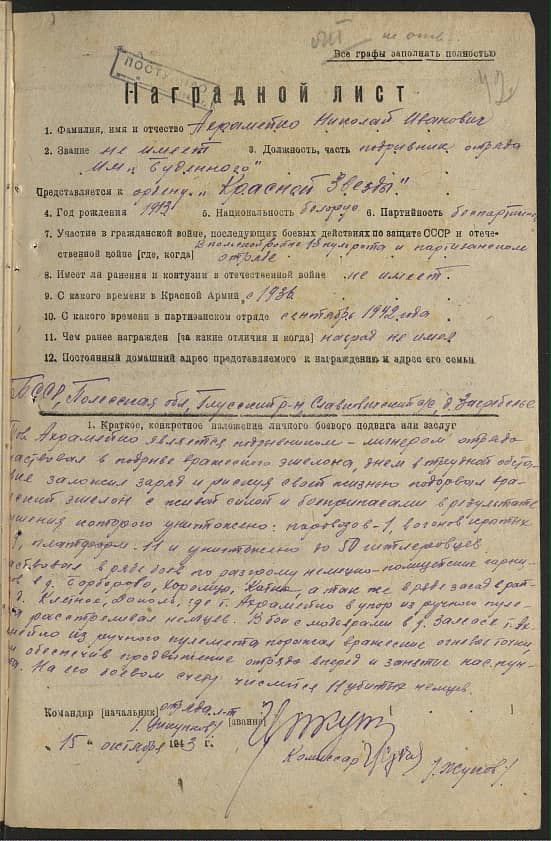 не отп.
Все графы заполнять полностью
ПОСТУП
42
Наградной лист
1. Фамилия, имя и отчество Акраметко Николай Иванович
2. Звание не имеет 3. Должность, часть подрывник отряда
им. Буденного"
Представляется к ордену „Красной Звезды"
4. Год рождения 5. Национальность белорус 6. Партийность беспартийн
7. Участие в гражданской войне, последующих боевых действиях по защите СССР и отече-
ственной войне [где, когда] и партизанском
отряде
8. Имеет ли ранения и контузии в отечественной войне не имеет.
9. С какого времени в Красной Армии с
10. С какого времени в партизанском отряде с сентября 1942 года
11. Чем ранее награжден [за какие отличия и когда] наград не имел
12. Постоянный домашний адрес представляемого к награждению и адрес его семьи
БССР, Полесская обл, Глусский р-н, Славковичский с/с, д. Загребелье
1. Краткое, конкретное изложение личного боевого подвига или заслуг
Тов. Акраметко является подрывником-минером отряда
аствовал в подриве вражеского эшелона, днем в трудной обста-
заложил заряд и рискуя своей жизнью подорвал вра-
еский эшелон с живой силой и боеприпасами в результате
ушения которого уничтожено: паровозов-1, вагонов крытых
платформ-11 и уничтожено до 50 гитлеровцев.
аствовал в ряде боев по разгрому немецко-полицейских гарни-
в д. Барбарово, Хоромцы, а так же в ряде засад в рай-
д. Клетное, где т. Акраметко в упор из ручного пуле-
расстреливал немцев. В бою с мадьярами в д. Заполье т. Ак-
метко из ручного пулемета поражал вражеские огневые точки,
обеспечив продвижение отряда вперед и занятие нас. пун-
та. На его боевом счету числится 11 убитых немцев.
Командир [начальник] отряда л-т
[звание]
„15" октября 1943 г.
Комиссар /Жуков/